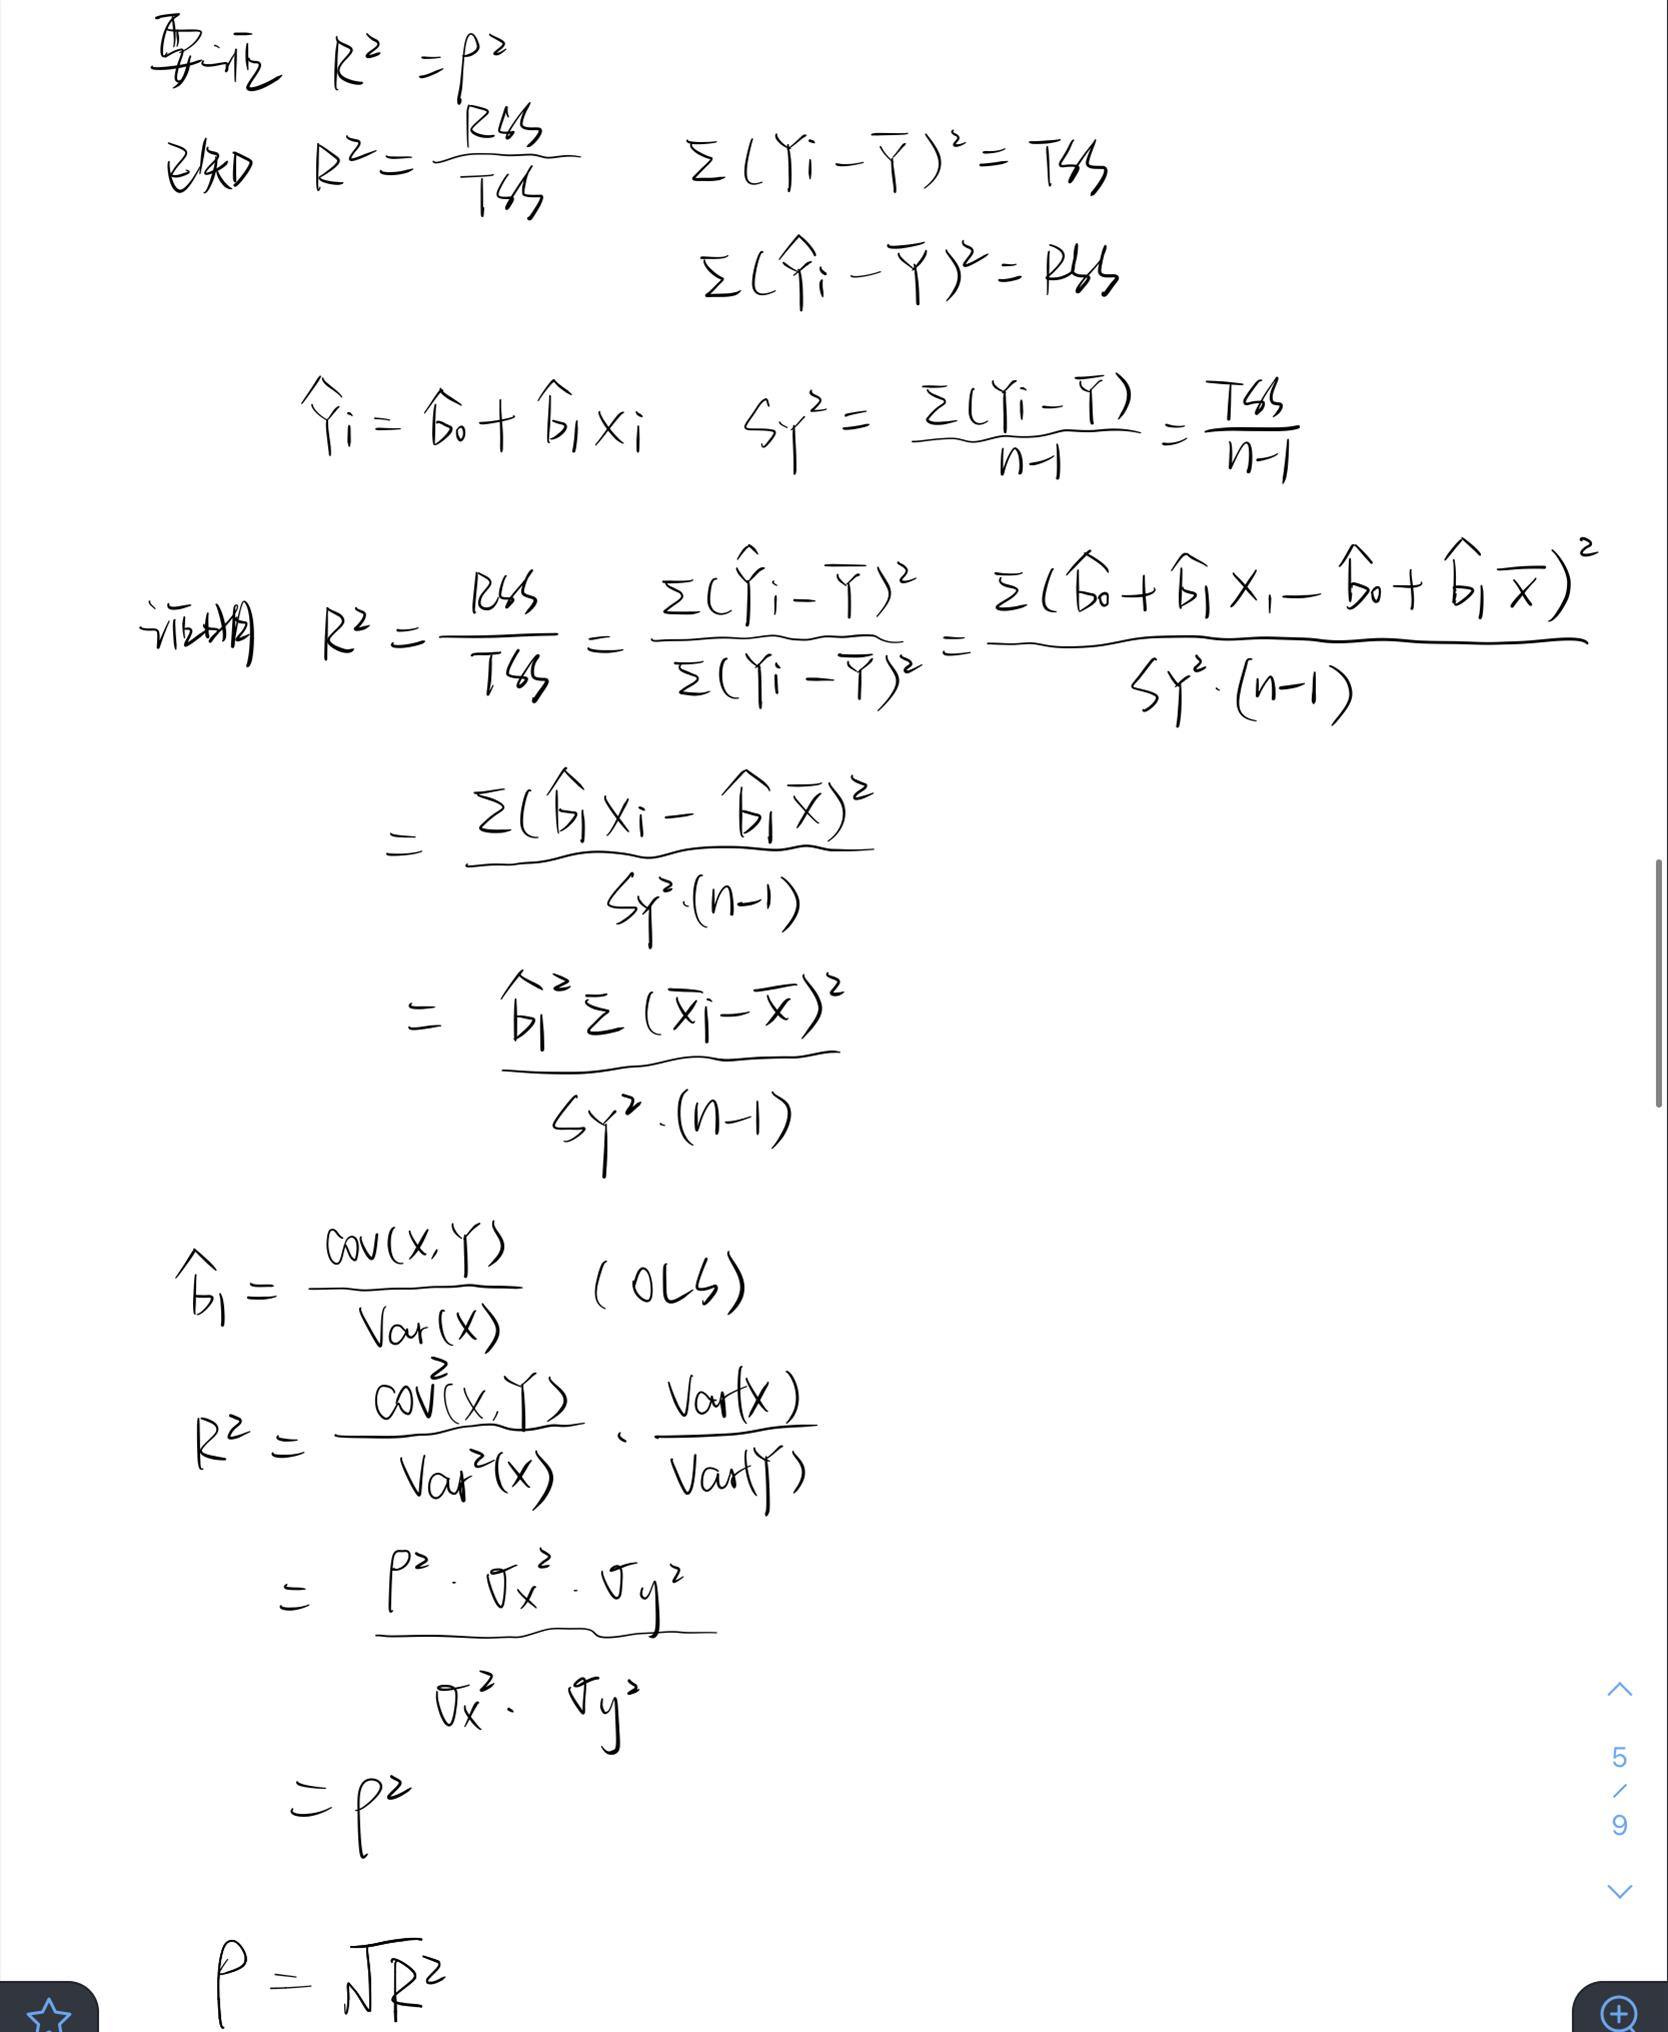 要证 R² = ρ²
已知 R² = RSS / TSS   Σ(Yi − Ȳ)² = TSS
Σ(Ŷi − Ȳ)² = RSS
Ŷi = b̂₀ + b̂₁xi   Sy² = Σ(Yi − Ȳ) / n−1 = TSS / n−1
证明 R² = RSS / TSS = Σ(Ŷi − Ȳ)² / Σ(Yi − Ȳ)² = Σ(b̂₀ + b̂₁x₁ − b̂₀ + b̂₁x̄)² / Sy²·(n−1)
= Σ(b̂₁xi − b̂₁x̄)² / Sy²·(n−1)
= b̂₁² Σ(x̄i − x̄)² / Sy²·(n−1)
b̂₁ = cov(x,Y) / Var(x) (OLS)
R² = cov²(x,Y) / Var²(x) · Var(x) / Var(Y)
= ρ²·σx²·σy² / σx²·σy²
= ρ²
5
/
9
ρ = √R²